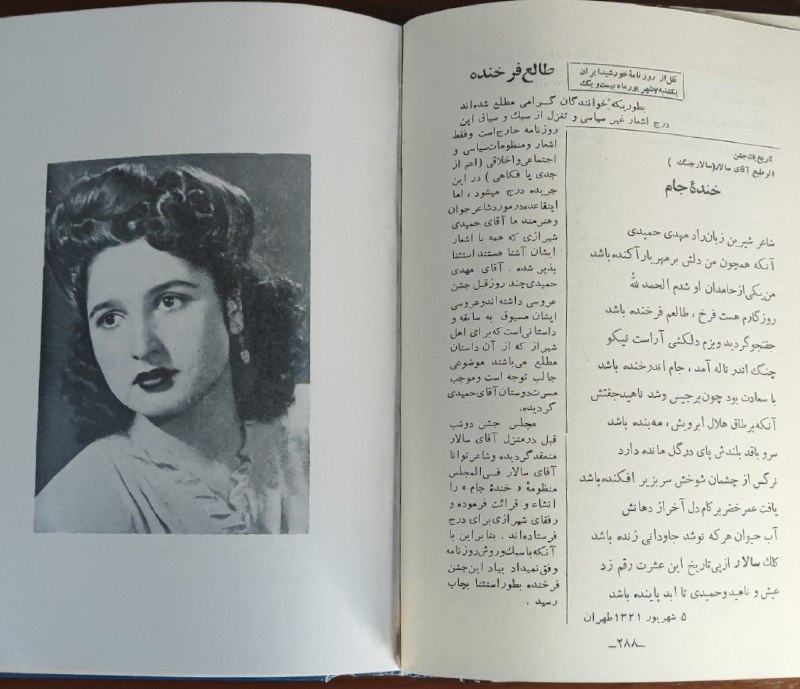 طالع فرخنده
نقل از روزنامهٔ خورشید ایران
یکشنبه ۷ شهریور ماه بیست و یک
بطوریکه خوانندگان گرامی مطلع شده‌اند
درج اشعار غیر سیاسی و تغزل از سبک و سیاق این
روزنامه خارج است و فقط
اشعار و منظومات سیاسی و
اجتماعی و اخلاقی (اعم از
جدی یا فکاهی) در این
جریده درج میشود، اما
اینقاعده در مورد شاعر جوان
و هنرمند ما آقای حمیدی
شیرازی که همه با اشعار
ایشان آشنا هستند استثنا
پذیر شده. آقای مهدی
حمیدی چند روز قبل جشن
عروسی داشته‌اند و عروسی
ایشان مسبوق به سابقه و
داستانی است که برای اهل
شیراز که از آن داستان
مطلع می‌باشند موضوعی
جالب توجه است و موجب
مسرت دوستان آقای حمیدی
گردیده.
مجلس جشن دوشب
قبل در منزل آقای سالار
منعقد گردیده و شاعر توانا
آقای سالار فی‌المجلس
منظومهٔ «خندهٔ جام» را
انشاء و قرائت فرموده و
رفقای شیرازی برای درج
فرستاده‌اند. بنابراین با
آنکه با سبک و روش روزنامه
وفق نمیداد بیاد این جشن
فرخنده بطور استثنا بچاپ
رسید.
تاریخ یک جشن
از طبع آقای سالار (سالار جنگ)
خندهٔ جام
شاعر شیرین زبان راد مهدی حمیدی
آنکه همچون من دلش بر مهر یار آکنده باشد
من یکی از حامدان او شدم الحمد لله
روزگارم هست فرخ، طالعم فرخنده باشد
جفتجو گردید و بزم دلکشی آراست نیکو
چنگ اندر ناله آمد، جام اندر خنده باشد
با سعادت بود چون برجیس و شد ناهید جفتش
آنکه بر طاق هلال ابرویش، مه بنده باشد
سرو باقد بلندش پای در گل مانده دارد
نرگس از چشمان شوخش سر بزیر افکنده باشد
یافت عمر خضر بر کام دل آخر از دهانش
آب حیوان هر که نوشد جاودانی زنده باشد
کلک سالار از پی تاریخ این عشرت رقم زد
عیش و ناهید و حمیدی تا ابد پاینده باشد
۵ شهریور ۱۳۲۱ طهران
ـ۲۸۸ـ